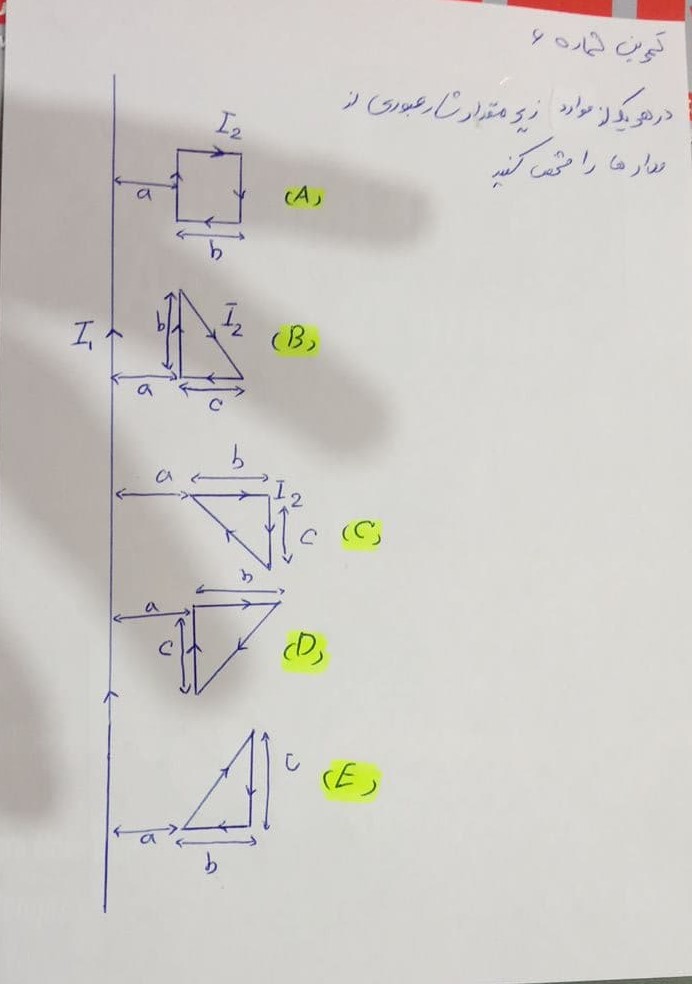 تمرین شماره ۶
در هر یک از موارد زیر مقدار شار عبوری از
مدارها را مشخص کنید
I2
a
(A)
b
I1
b
I2
(B)
a
c
b
a
I2
c
(C)
b
a
c
(D)
c
(E)
a
b